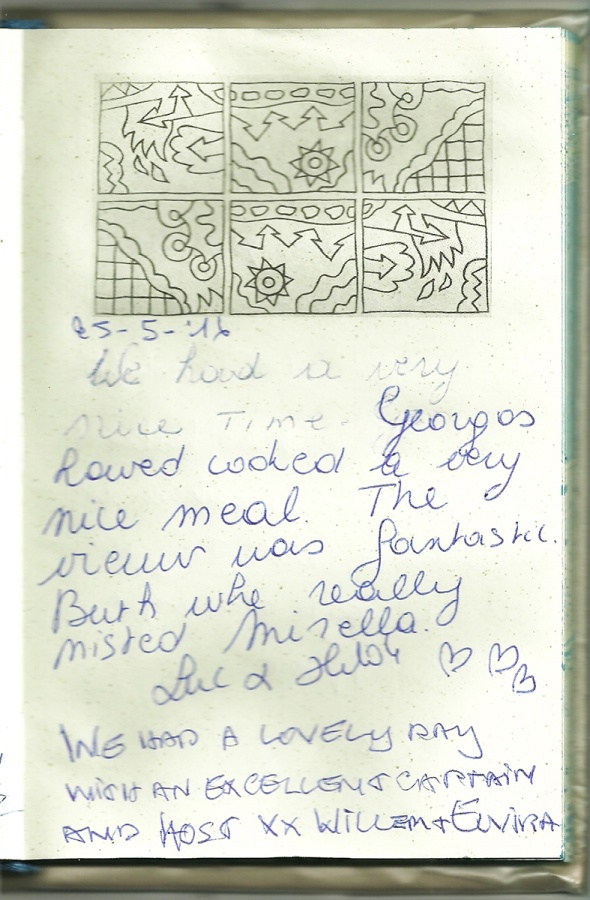 25-5-'16
We had a very
nice Time. Georgos
howed cooked a very
nice meal. The
vieuw was fantastic.
Buth whe really
misted Mirella.
Luc &
WE HAD A LOVELY DAY
WITH AN EXCELLENT CAPTAIN
AND HOST XX WILLEM + ELVIRA